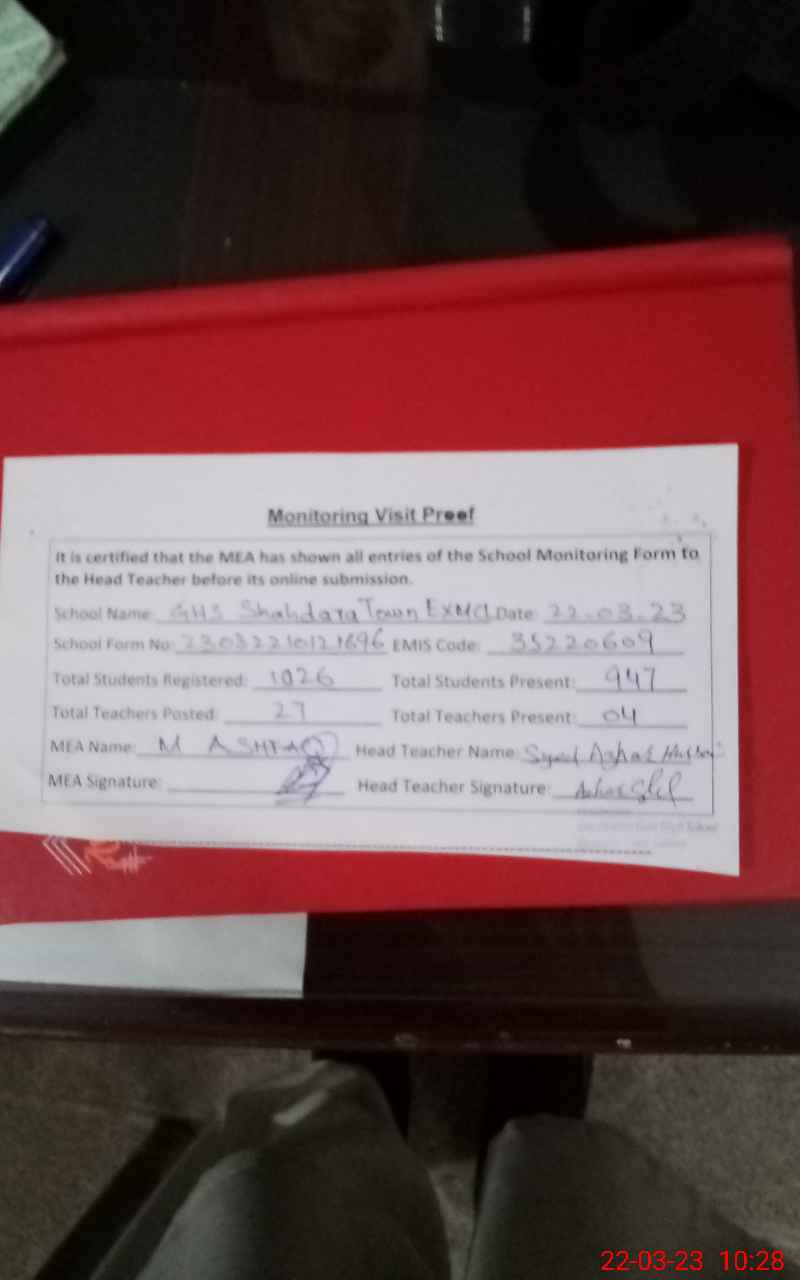 Monitoring Visit Proof
It is certified that the MEA has shown all entries of the School Monitoring Form to
the Head Teacher before its online submission.
School Name: GHS Shahdara Town EXMCL Date: 22-03-23
School Form No: EMIS Code: 35220609
Total Students Registered: 1026 Total Students Present: 947
Total Teachers Posted: 27 Total Teachers Present: 04
MEA Name: M ASHFAQ Head Teacher Name: Syed
MEA Signature: Head Teacher Signature:
High School
22-03-23 10:28